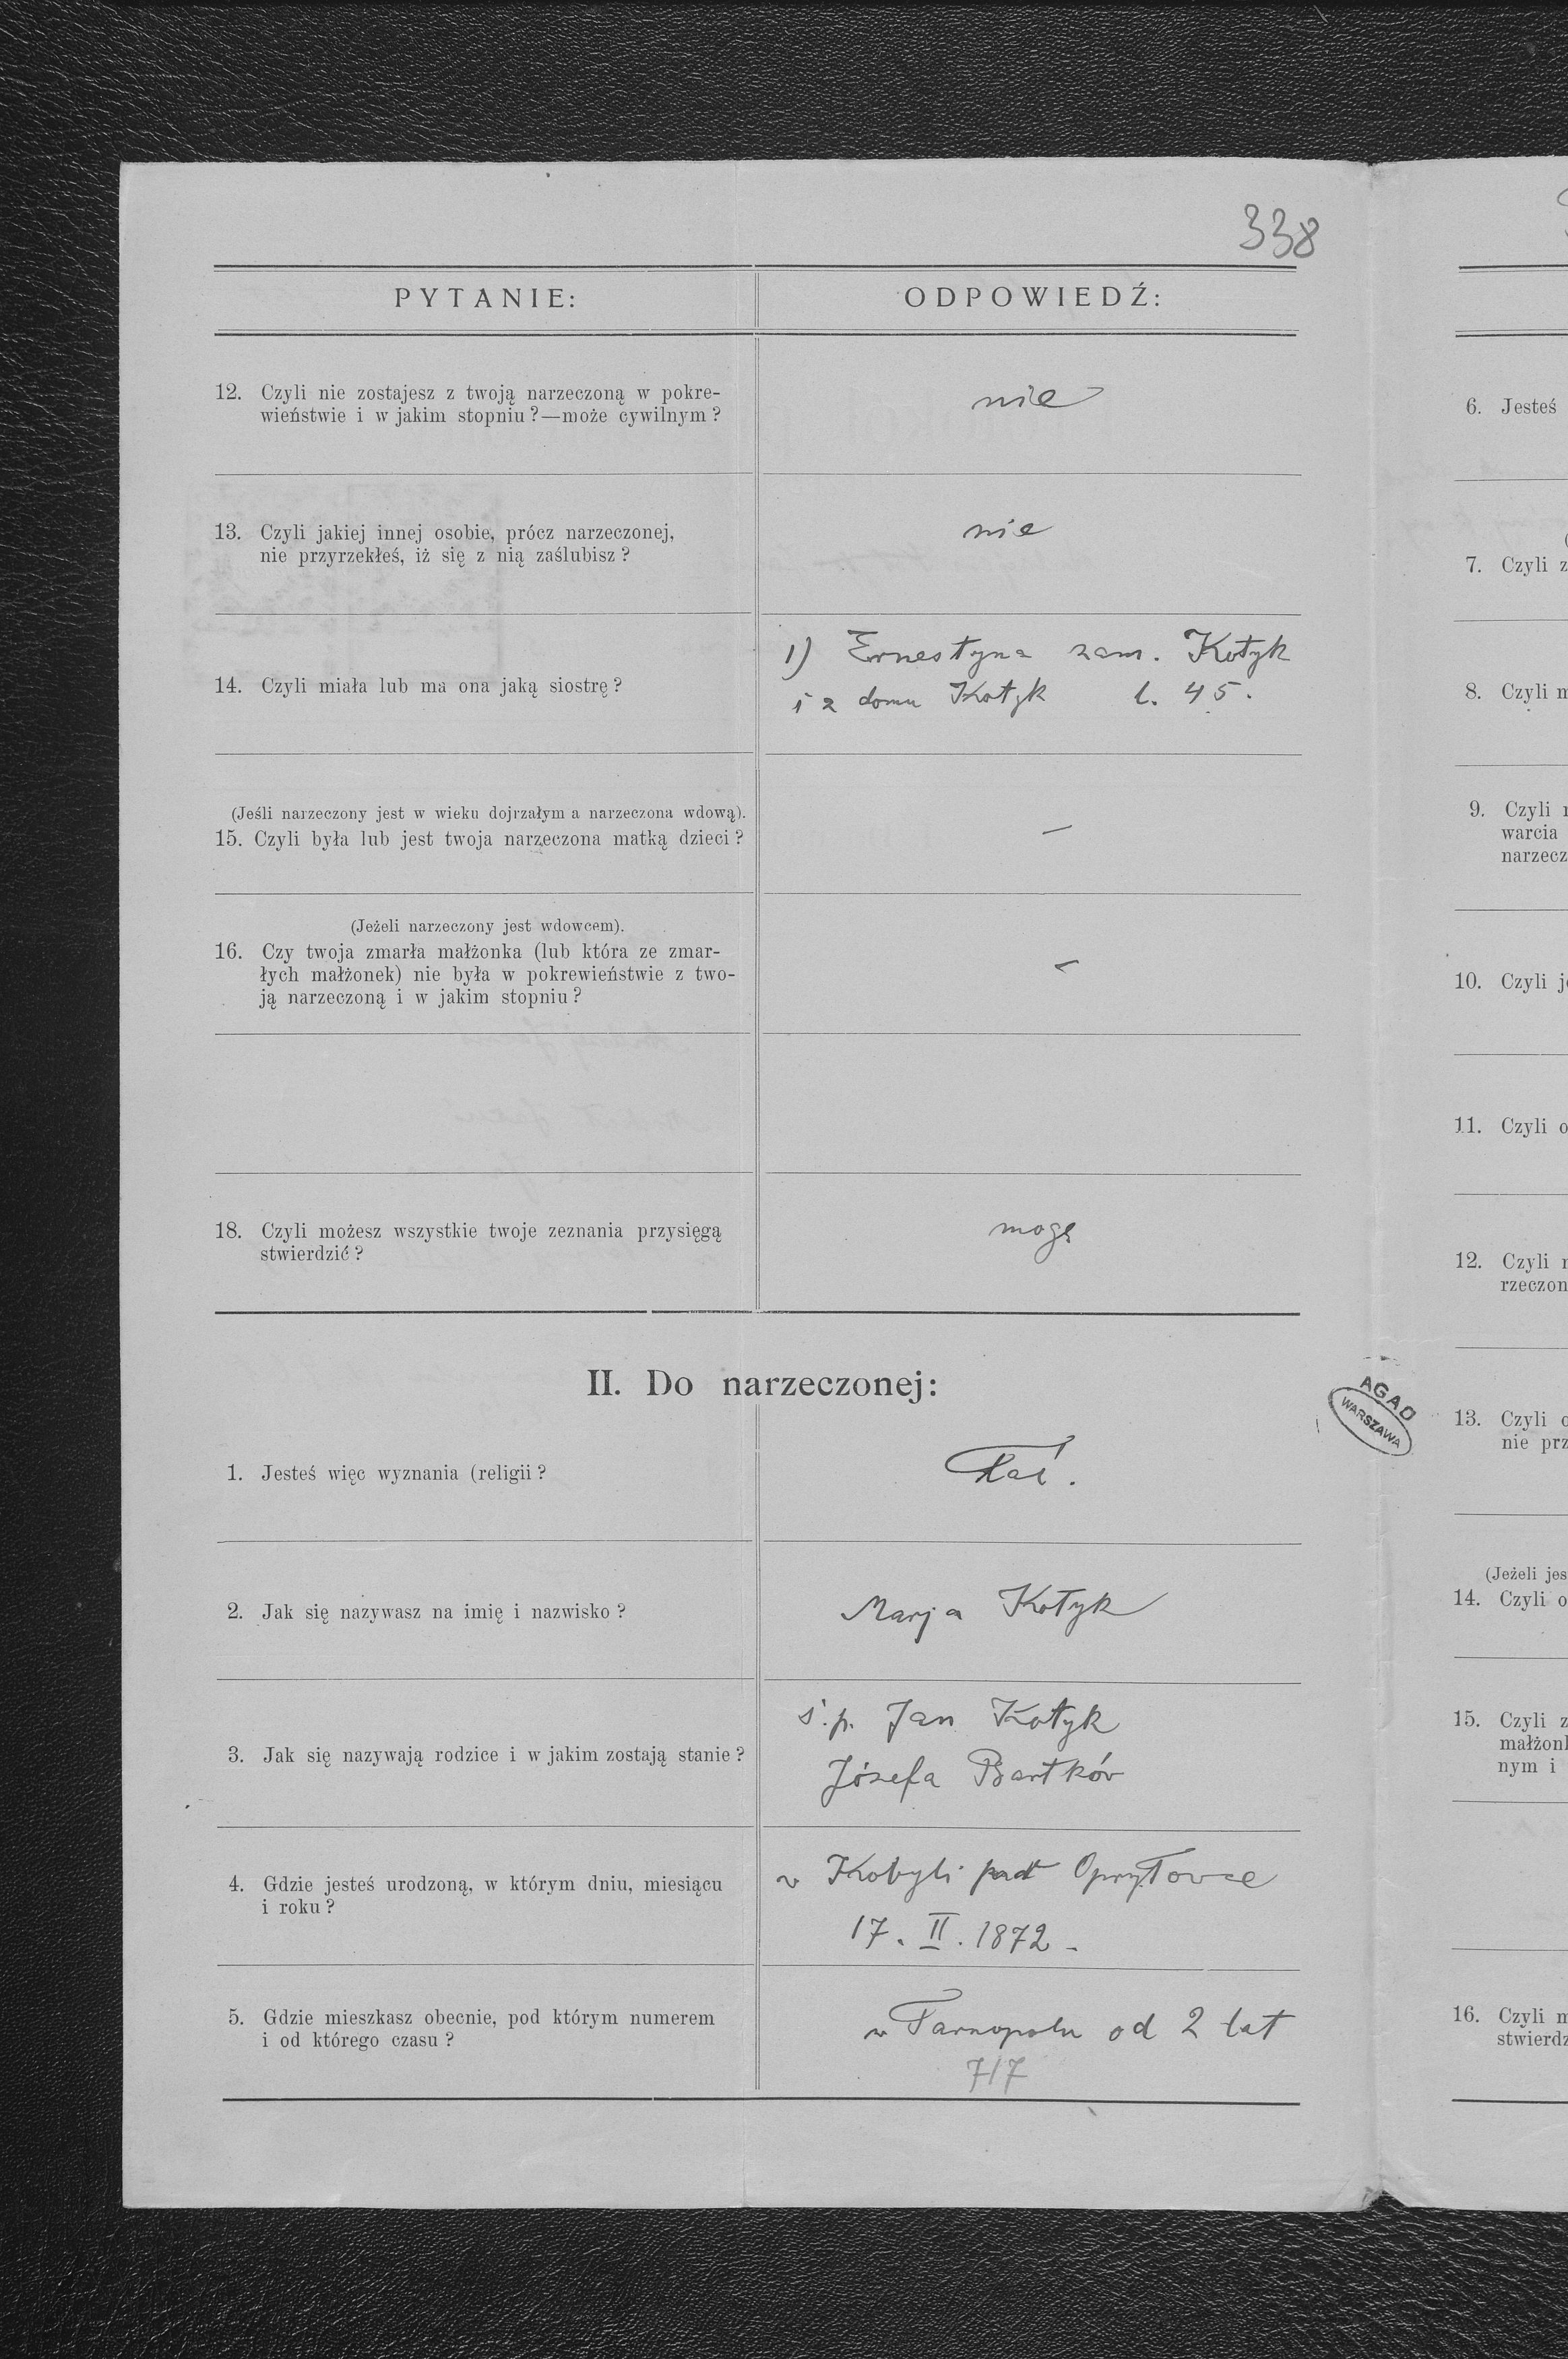 338
PYTANIE:
ODPOWIEDŹ:
12. Czyli nie zostajesz z twoją narzeczoną w pokre-
wieństwie i w jakim stopniu?—może cywilnym?
nie
13. Czyli jakiej innej osobie, prócz narzeczonej,
nie przyrzekłeś, iż się z nią zaślubisz?
nie
14. Czyli miała lub ma ona jaką siostrę?
1) Ernestyna zam. Kotyk
i z domu Kotyk l. 45.
(Jeśli narzeczony jest w wieku dojrzałym a narzeczona wdową).
15. Czyli była lub jest twoja narzeczona matką dzieci?
—
(Jeżeli narzeczony jest wdowcem).
16. Czy twoja zmarła małżonka (lub która ze zmar-
łych małżonek) nie była w pokrewieństwie z two-
ją narzeczoną i w jakim stopniu?
—
18. Czyli możesz wszystkie twoje zeznania przysięgą
stwierdzić?
mogę
II. Do narzeczonej:
1. Jesteś więc wyznania (religii?
2. Jak się nazywasz na imię i nazwisko?
Marja Kotyk
3. Jak się nazywają rodzice i w jakim zostają stanie?
ś.p. Jan Kotyk
Józefa Bartków
4. Gdzie jesteś urodzoną, w którym dniu, miesiącu
i roku?
w Kobyli
17. II. 1872 -
5. Gdzie mieszkasz obecnie, pod którym numerem
i od którego czasu?
w Tarnopolu od 2 lat
717
AGAD
WARSZAWA
6. Jesteś
7. Czyli z
8. Czyli m
9. Czyli
warcia
narzecz
10. Czyli j
11. Czyli o
12. Czyli
rzeczon
13. Czyli o
nie prz
(Jeżeli jes
14. Czyli o
15. Czyli z
małżon
nym i
16. Czyli m
stwierdz